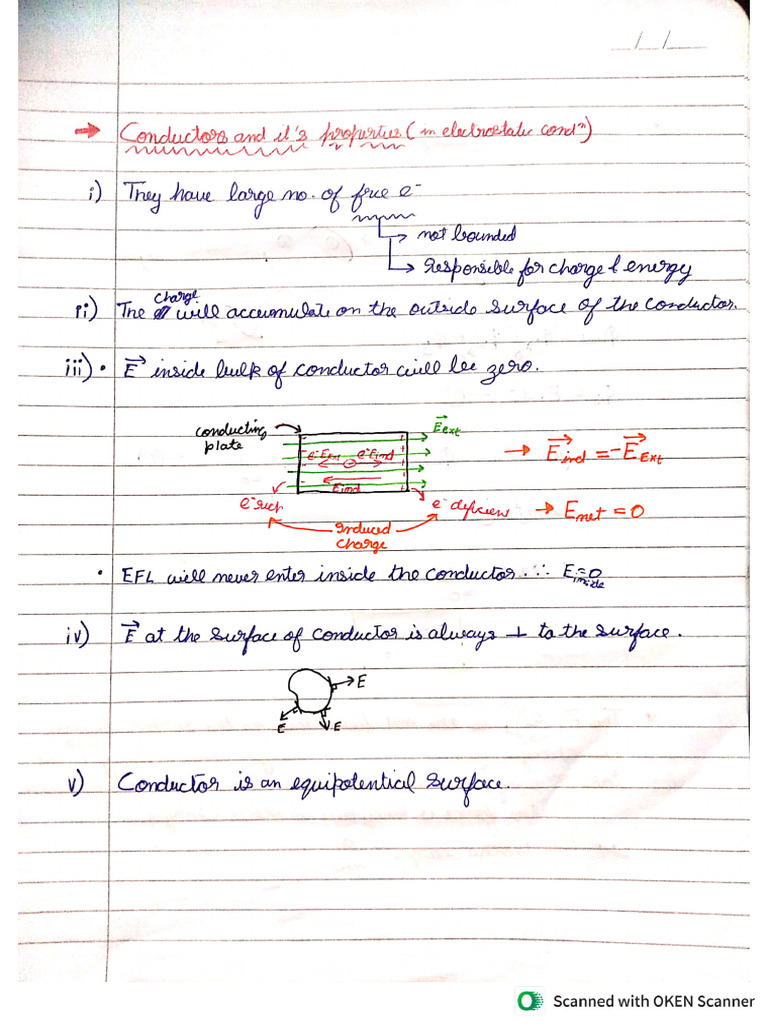 __/__/____
→ Conductors and it's properties (in electrostatic condⁿ)
i) They have large no. of free e⁻
→ not bounded
→ Responsible for charge & energy
ii) The charge will accumulate on the outside surface of the conductor.
iii) • E⃗ inside bulk of conductor will be zero.
conducting plate
E⃗ext
e⁻Eext e⁻Eind
Eind
→ E⃗ind = -E⃗Ext
e⁻ rich
e⁻ deficient → Enet = 0
Induced charge
• EFL will never enter inside the conductor. ∵ Einside = 0
iv) E⃗ at the surface of conductor is always ⊥ to the surface.
E
E
E
v) Conductor is an equipotential surface.
Scanned with OKEN Scanner